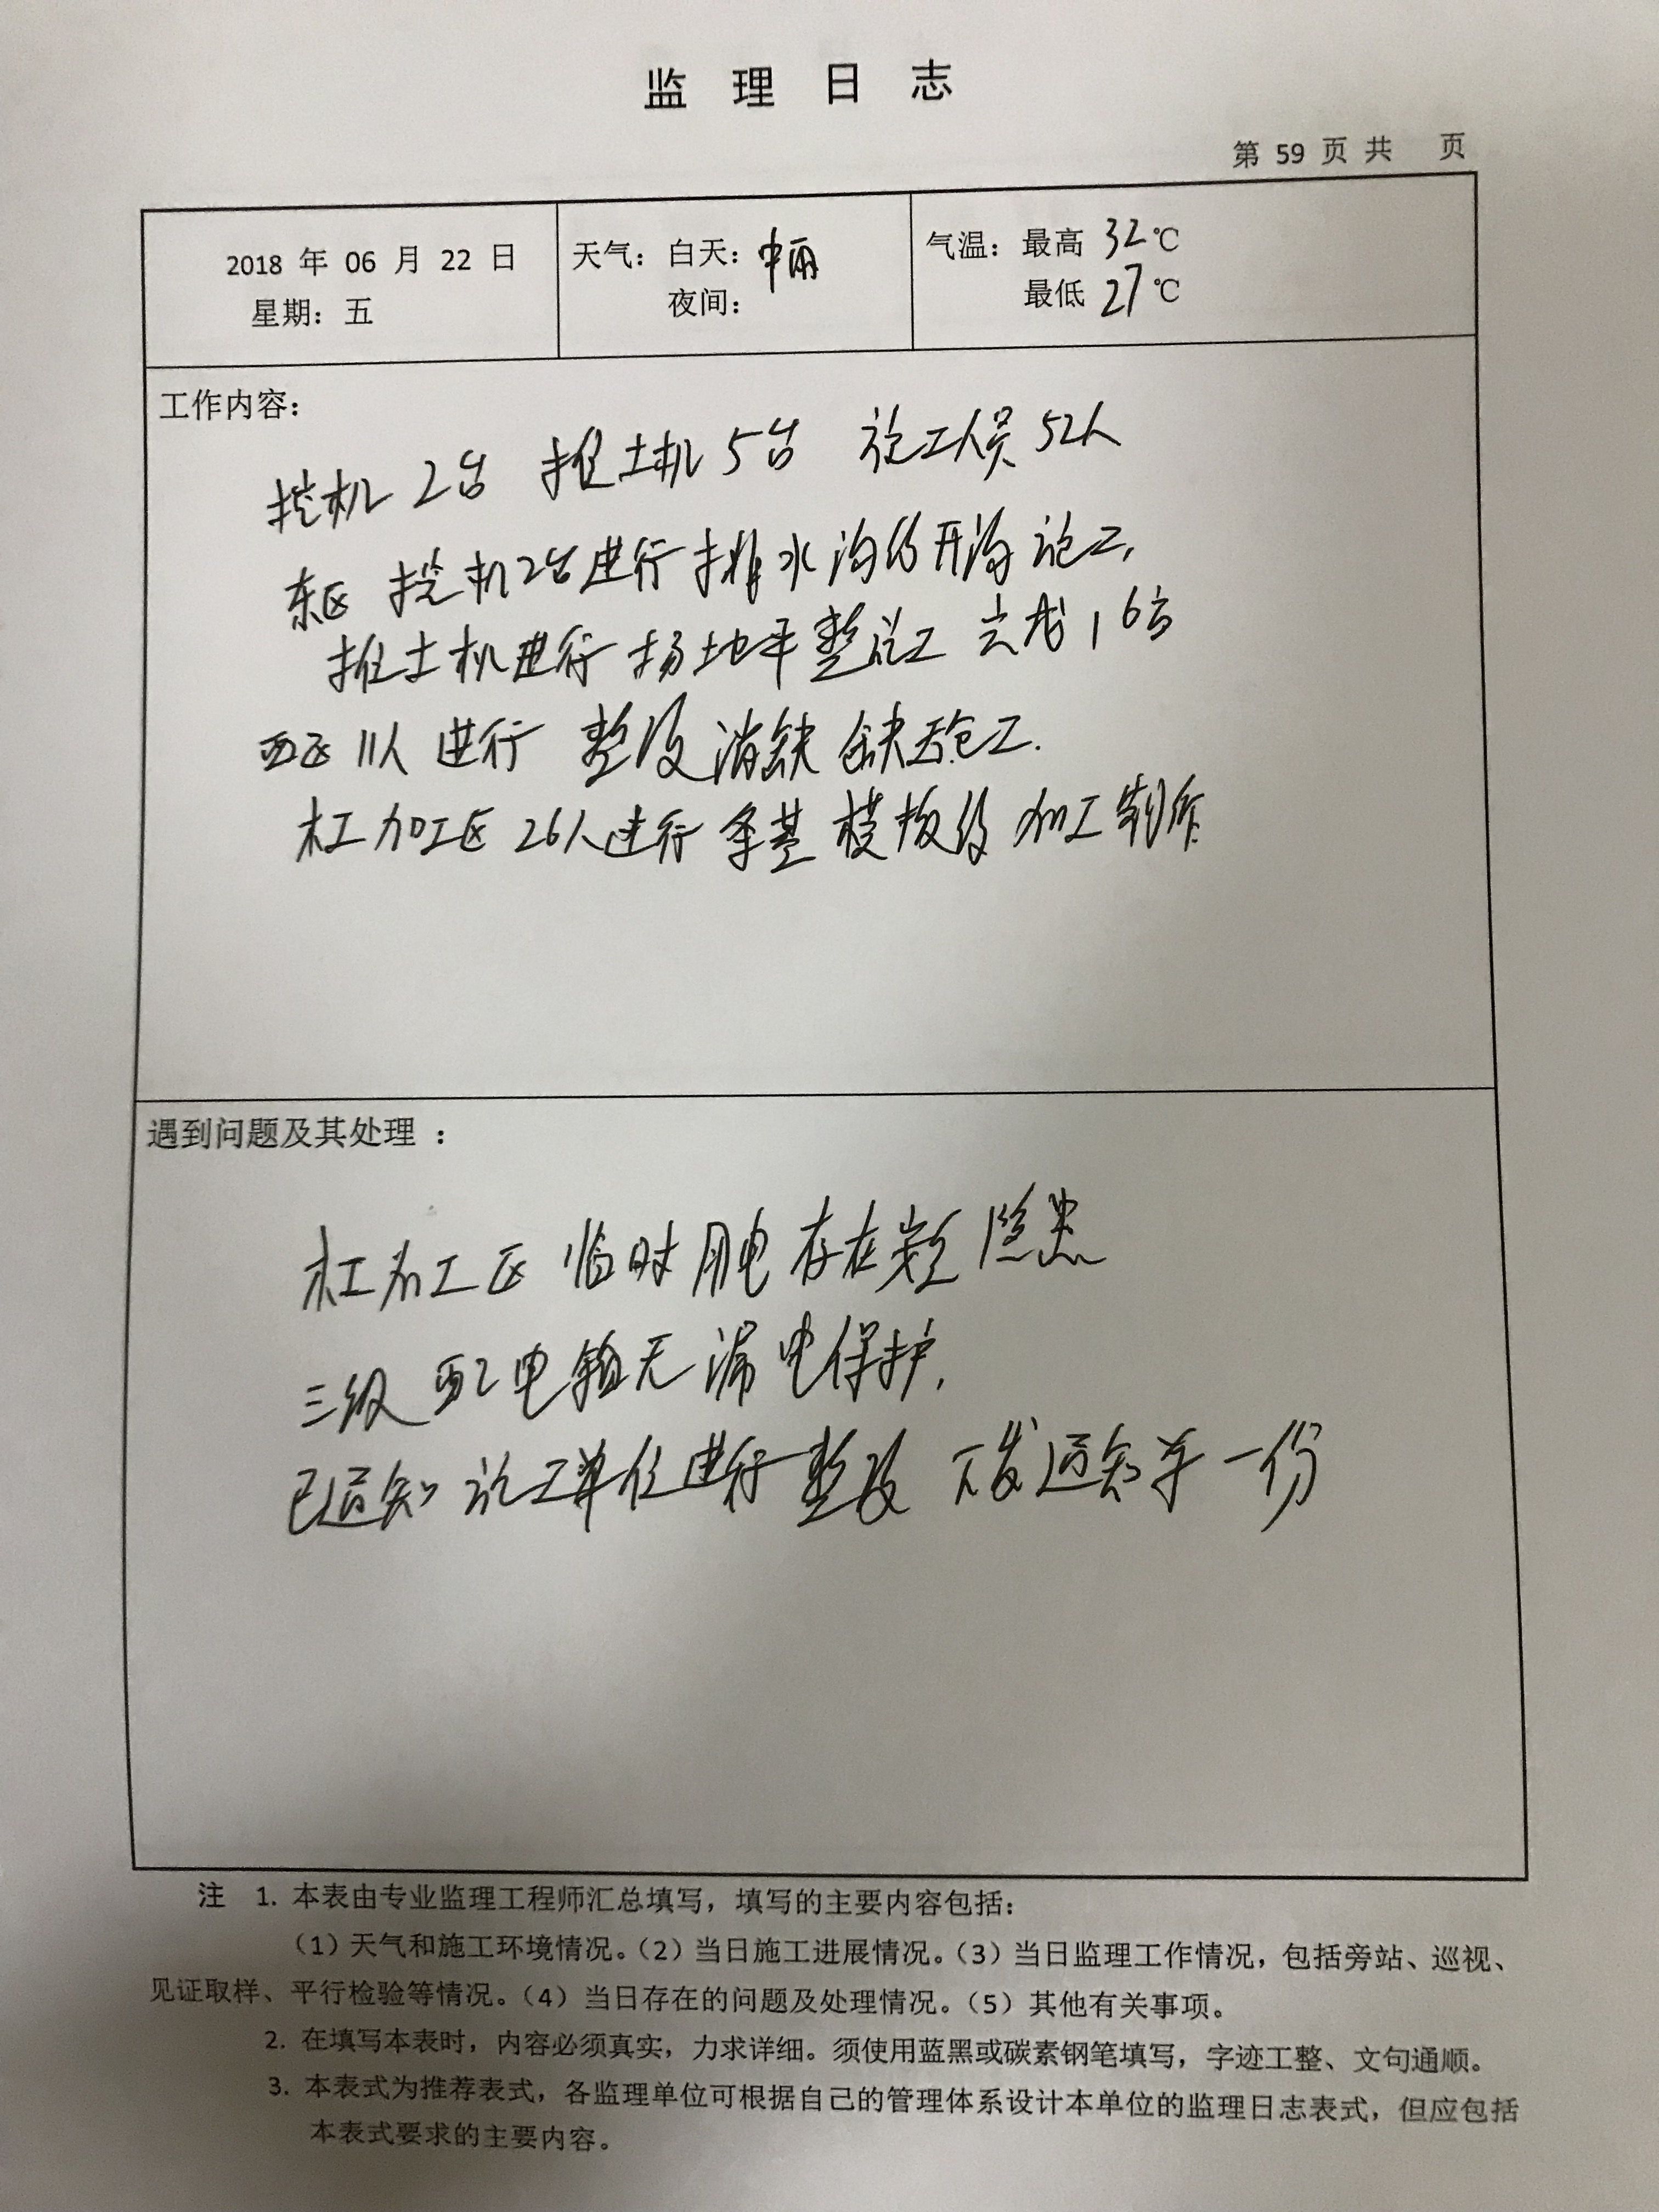 监理日志
第 59 页 共 页
2018 年 06 月 22 日
星期：五
天气：白天：中雨
夜间：
气温：最高 32℃
最低 27℃
工作内容：
挖机2台 推土机5台 施工人员52人
东区 挖机2台进行排水沟的开沟施工，
推土机进行场地平整施工 完成16方
西区11人 进行 整改消缺 施工.
杠加工区 26人进行条基模板的加工制作
遇到问题及其处理 ：
杠加工区 临时用电存在 隐患
三级配电箱无漏电保护.
已通知施工单位进行整改 下发通知单一份
注 1. 本表由专业监理工程师汇总填写，填写的主要内容包括：
（1）天气和施工环境情况。（2）当日施工进展情况。（3）当日监理工作情况，包括旁站、巡视、
见证取样、平行检验等情况。（4）当日存在的问题及处理情况。（5）其他有关事项。
2. 在填写本表时，内容必须真实，力求详细。须使用蓝黑或碳素钢笔填写，字迹工整、文句通顺。
3. 本表式为推荐表式，各监理单位可根据自己的管理体系设计本单位的监理日志表式，但应包括
本表式要求的主要内容。